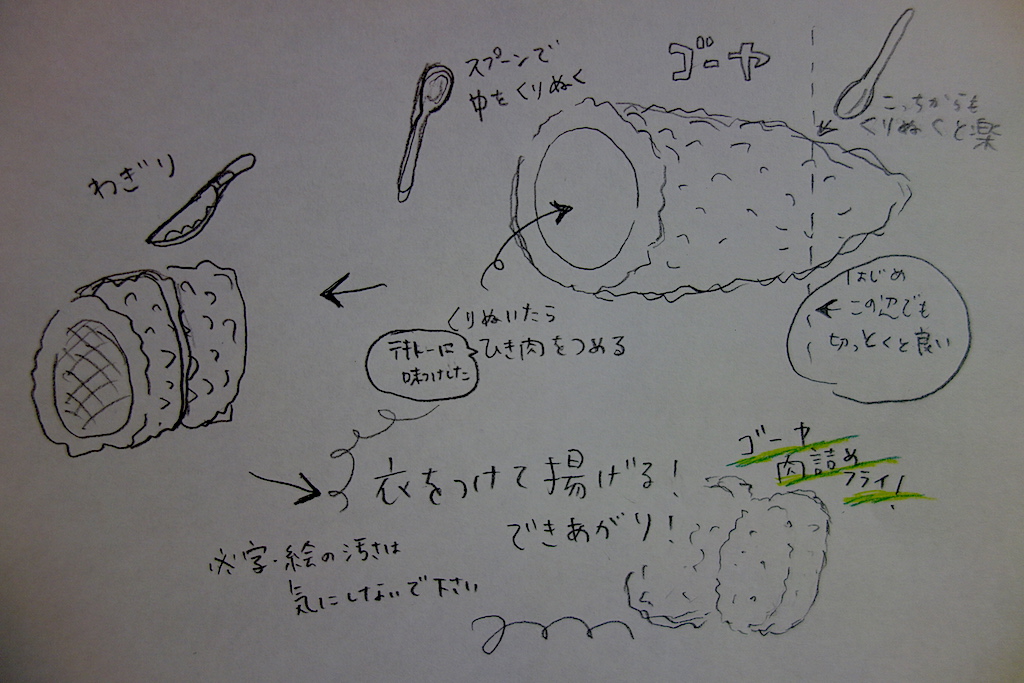 ゴーヤ
スプーンで
中をくりぬく
こっちからも
くりぬくと楽
はじめ
この辺でも
切っとくと良い
くりぬいたら
ひき肉をつめる
テキトーに
味つけした
わぎり
衣をつけて揚げる!
できあがり!
ゴーヤ
肉詰め
フライ!
※字・絵の汚さは
気にしないで下さい